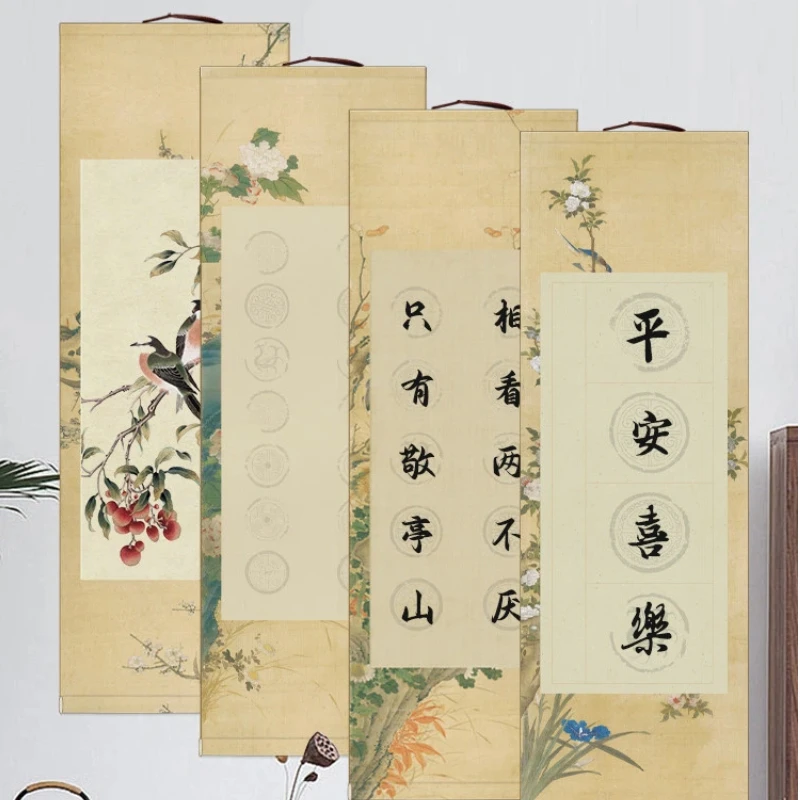 相看两不厌
只有敬亭山
平安喜樂